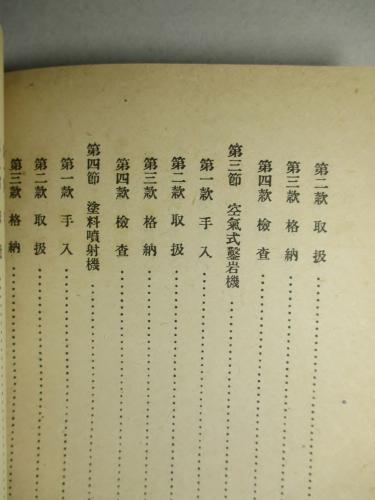 第二款 取扱
第三款 格納
第四款 檢查
第三節 空氣式鑿岩機
第一款 手入
第二款 取扱
第三款 格納
第四款 檢查
第四節 塗料噴射機
第一款 手入
第二款 取扱
第三款 格納